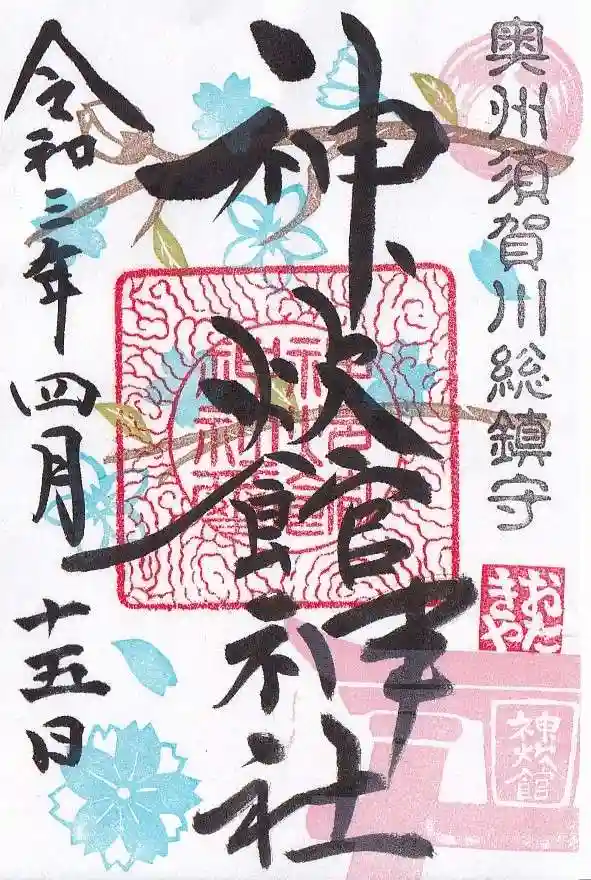 奥州須賀川総鎮守
おたきや
神炊館
神炊館神社
令和三年四月十五日